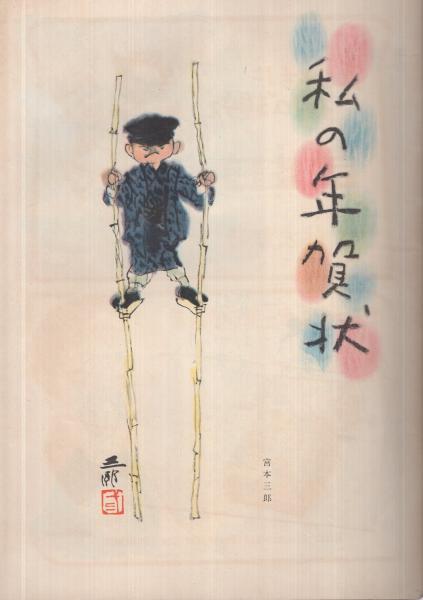 私の年賀状
宮本三郎
三郎